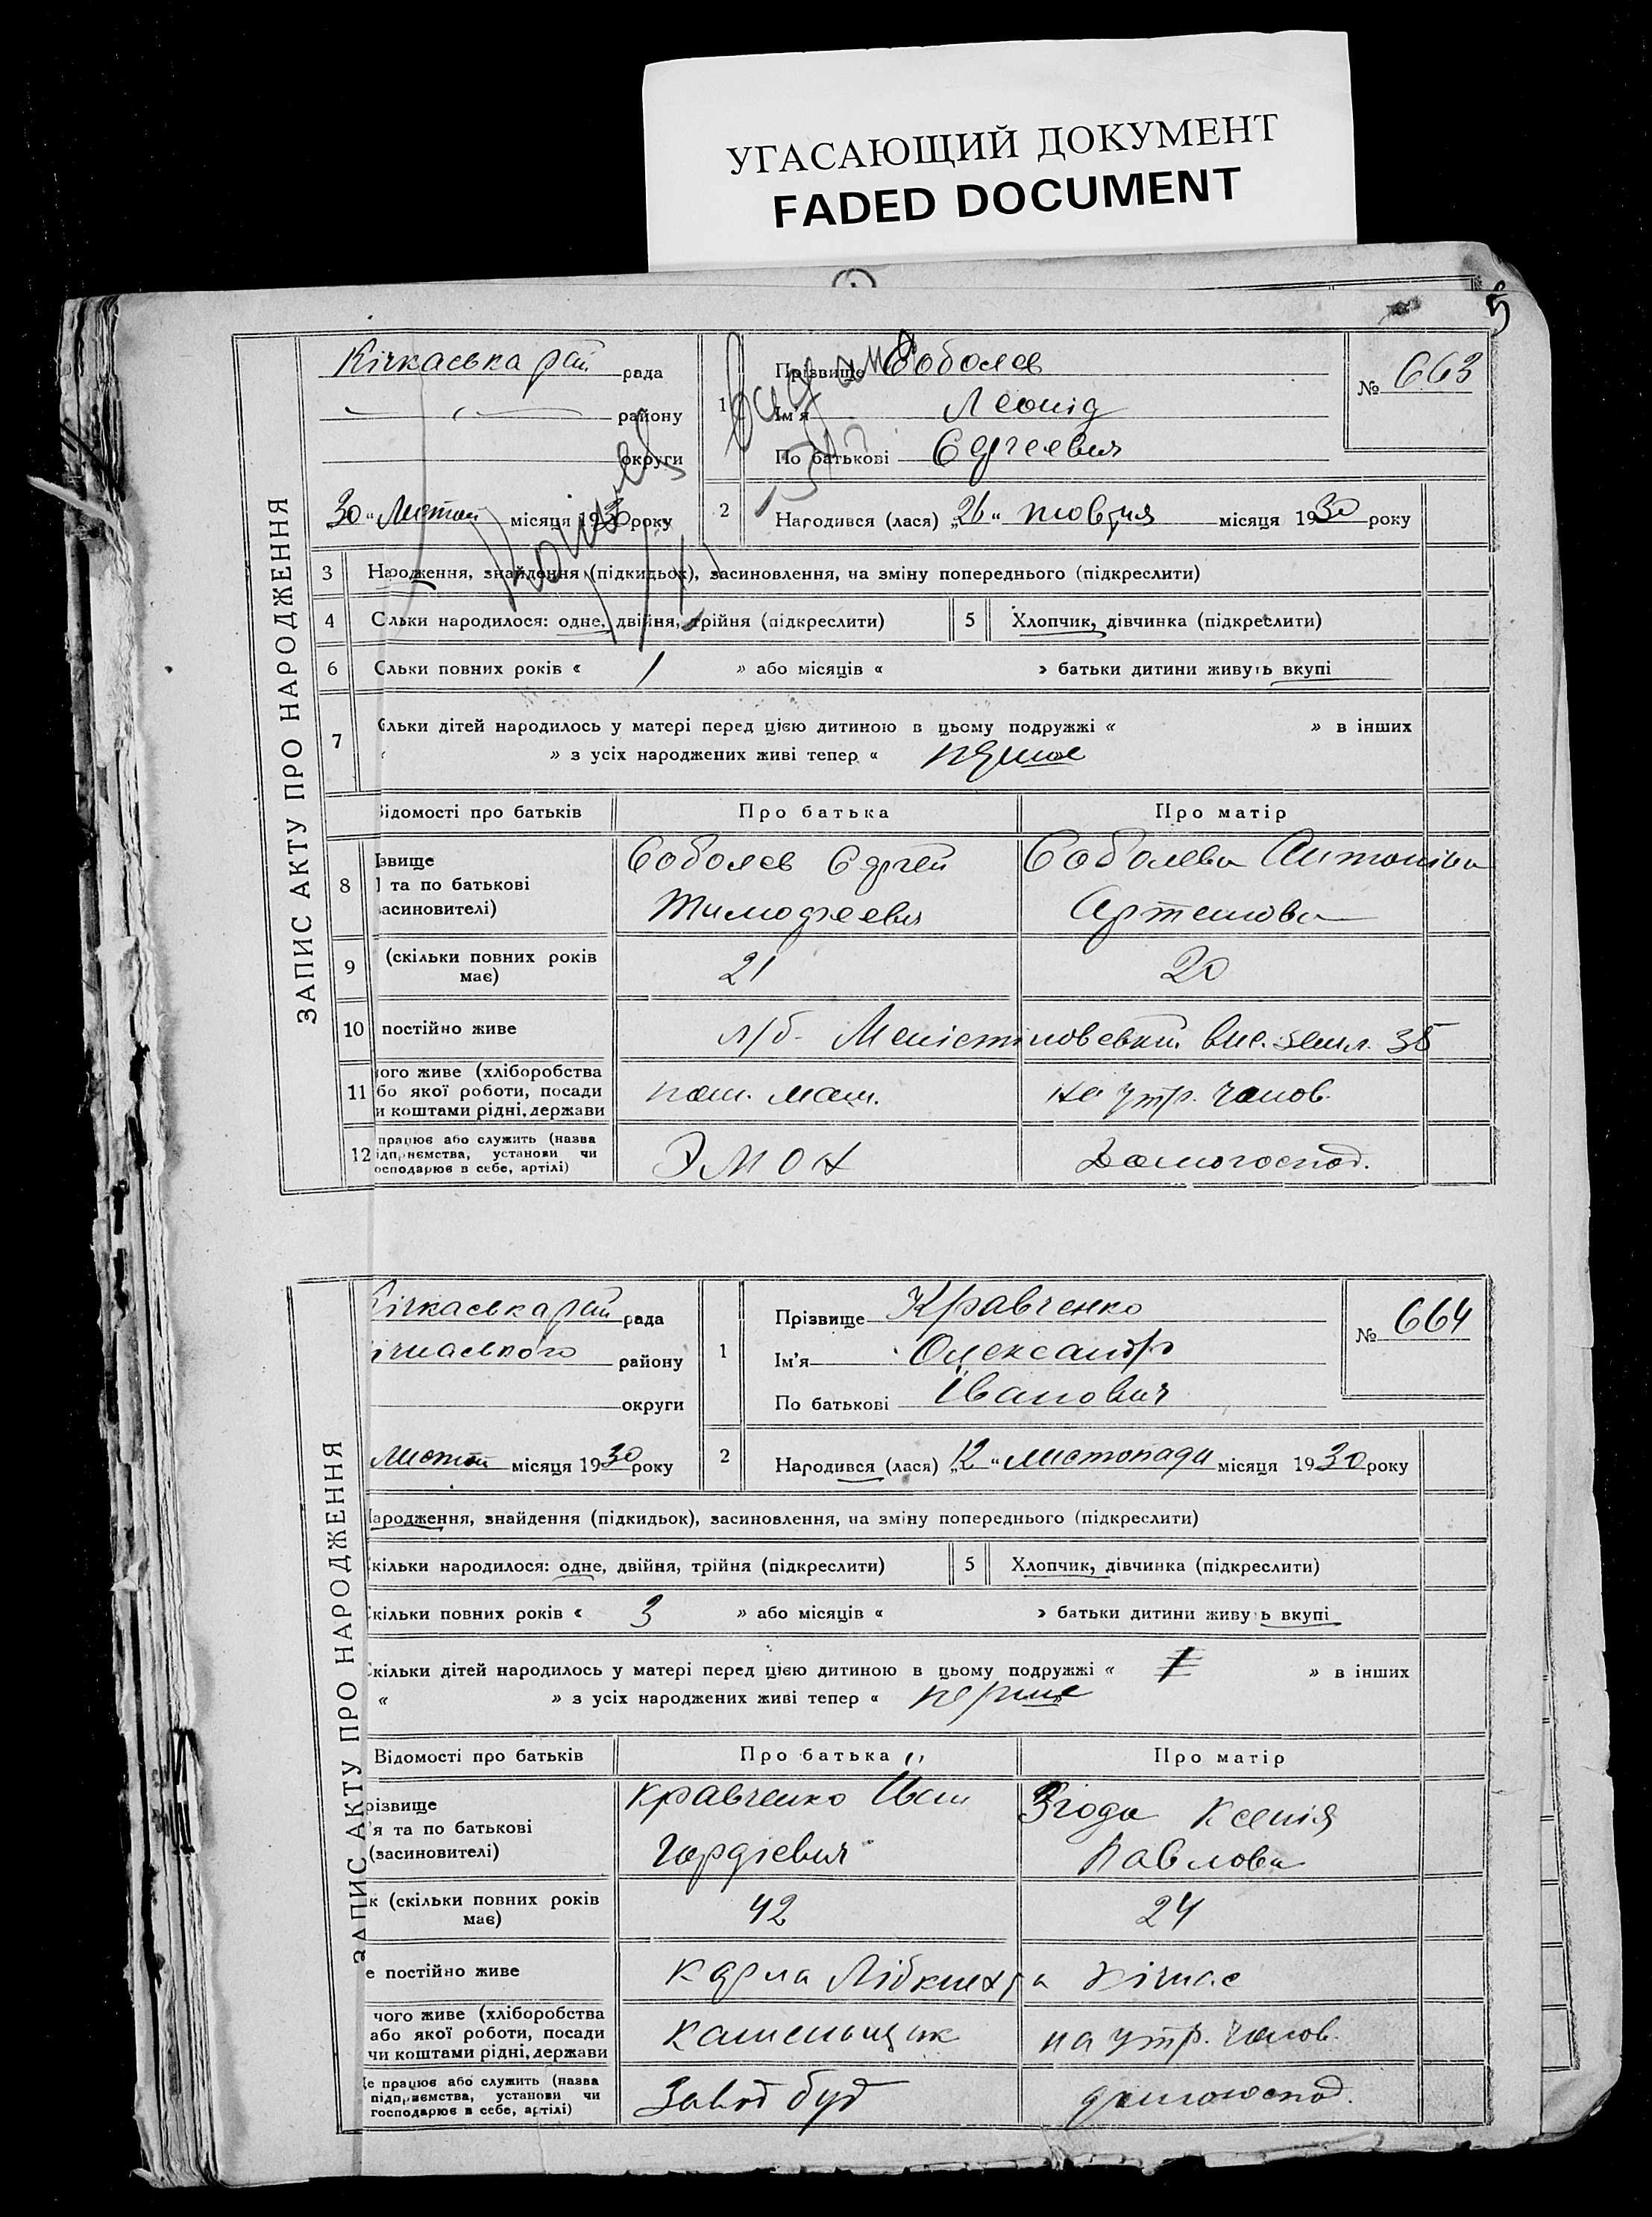 УГАСАЮЩИЙ ДОКУМЕНТ
FADED DOCUMENT
5
ЗАПИС АКТУ ПРО НАРОДЖЕННЯ
Кічкаська рай рада
району
округи
30 " Листоп місяця 1930 року
1
Прізвище Соболев
Ім'я Леонід
По батькові Сергеевич
№ 663
2
Народився (лася) „26 " жовтня місяця 1930 року
3 Народження, знайдення (підкидьок), засиновлення, на зміну попереднього (підкреслити)
4 Сільки народилося: одне, двійня, трійня (підкреслити) 5 Хлопчик, дівчинка (підкреслити)
6 Сільки повних років « 1 » або місяців « » батьки дитини живуть вкупі
7 кільки дітей народилось у матері перед цією дитиною в цьому подружжі « » в інших
« » з усіх народжених живі тепер « перше
Відомості про батьків Про батька Про матір
8 ізвище
та по батькові
засиновителі)
Соболев Сергей
Тимофеевич
Соболева Антоніна
Артемова
9 (скільки повних років має) 21 20
10 постійно живе л/б- вис. земл. 35
11 чого живе (хліборобства
бо якої роботи, посади
и коштами рідні, держави
пом. маш. на утр. чолов.
12 працює або служить (назва
ідприємства, установи чи
осподарює в себе, артілі)
Домогоспод.
ЗАПИС АКТУ ПРО НАРОДЖЕННЯ
Кічкаська рай рада
ічкаського району
округи
Листоп місяця 1930 року
1
Прізвище Кравченко
Ім'я Олександр
По батькові Іванович
№ 664
2
Народився (лася) „12 " листопада місяця 1930 року
Народження, знайдення (підкидьок), засиновлення, на зміну попереднього (підкреслити)
Скільки народилося: одне, двійня, трійня (підкреслити) 5 Хлопчик, дівчинка (підкреслити)
Скільки повних років « 3 » або місяців « » батьки дитини живуь вкупі
Скільки дітей народилось у матері перед цією дитиною в цьому подружжі « 1 » в інших
« » з усіх народжених живі тепер « перше
Відомості про батьків Про батька Про матір
різвище
'я та по батькові
(засиновителі)
Кравченко Іван
Гордієвич
Згода Ксенія
Павлова
к (скільки повних років має) 42 24
е постійно живе Карла Лібкнехта Кічкас
чого живе (хліборобства
або якої роботи, посади
чи коштами рідні, держави
Каменьщик на утр. чолов.
Де працює або служить (назва
підприємства, установи чи
господарює в себе, артілі)
Завод буд домогоспод.